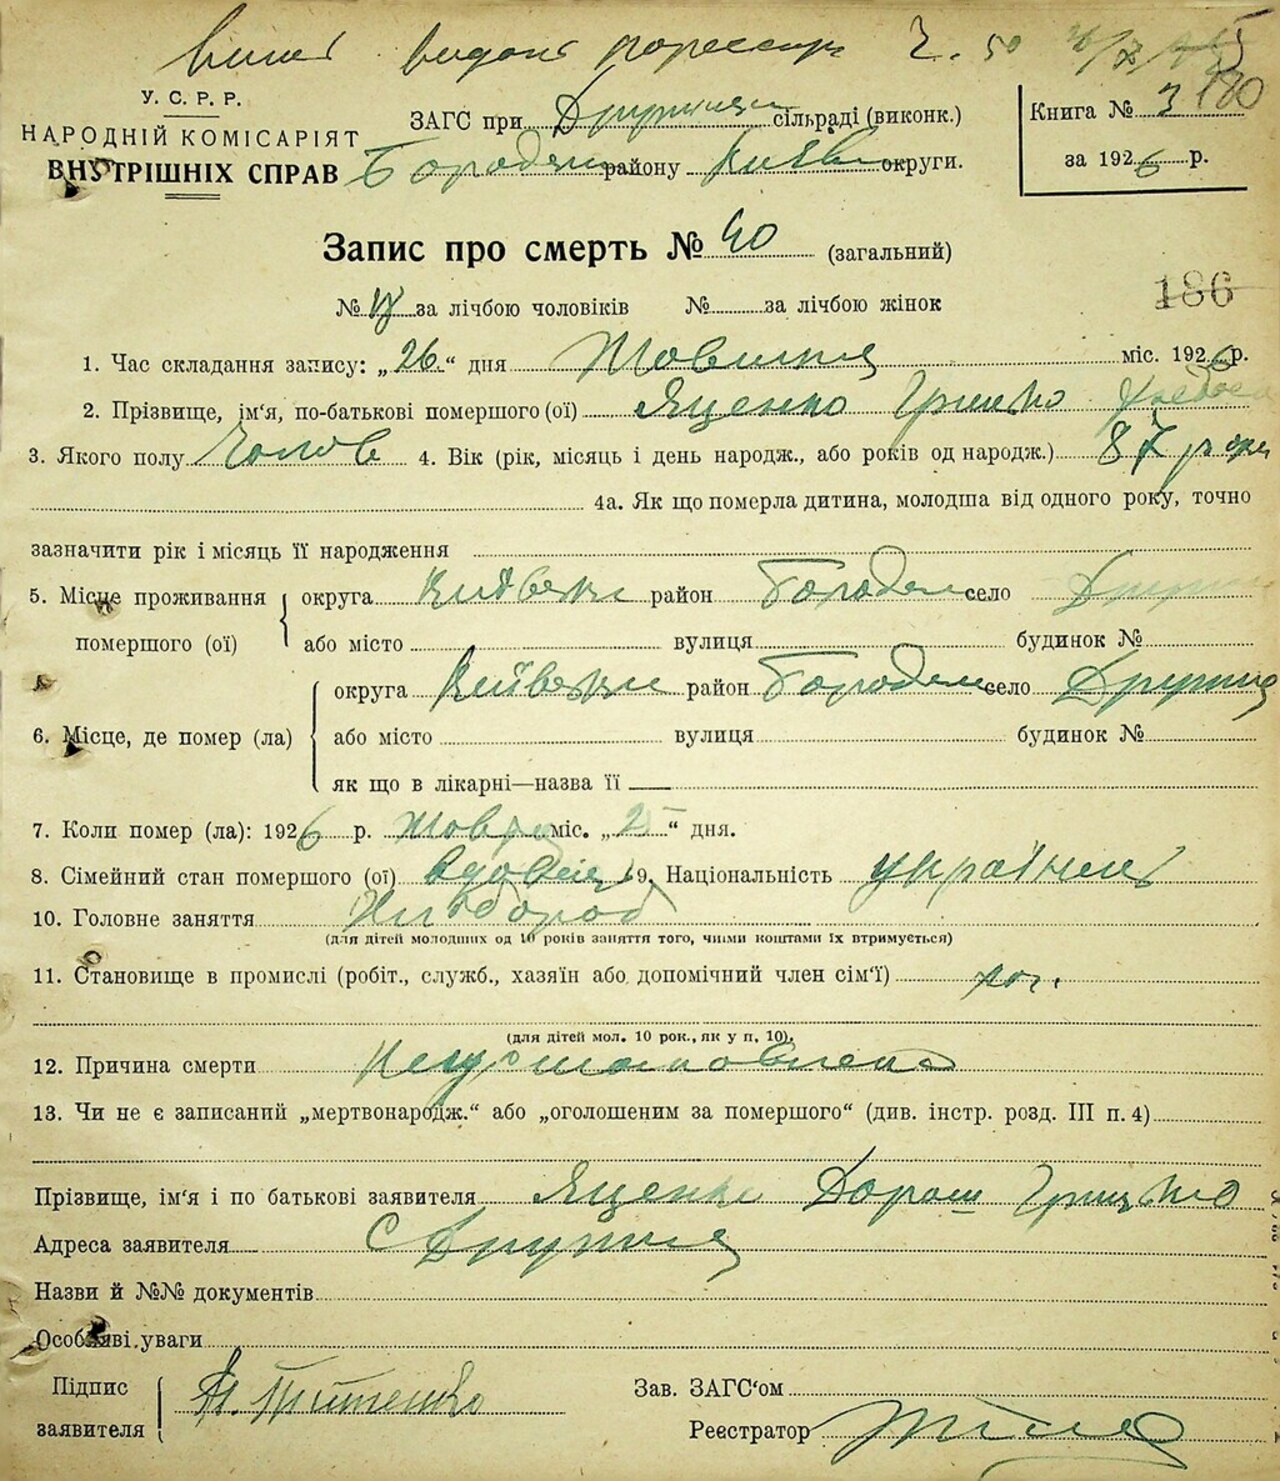 У. С. Р. Р.
НАРОДНІЙ КОМІСАРІЯТ
ВНУТРІШНІХ СПРАВ
ЗАГС при Дружня сільраді (виконк.)
Бородян району Київ округи.
Книга № 3
за 1926 р.
180
Запис про смерть № 40 (загальний)
№ за лічбою чоловіків № за лічбою жінок
186
1. Час складання запису: „26“ дня Жовтня міс. 1926 р.
2. Прізвище, ім‘я, по-батькові помершого (ої) Яценко Грицько
3. Якого полу Чолов 4. Вік (рік, місяць і день народж., або років од народж.) 87 роки
4а. Як що померла дитина, молодша від одного року, точно
зазначити рік і місяць її народження
5. Місце проживання помершого (ої) округа Київськ район Бородян село Друж
або місто вулиця будинок №
6. Місце, де помер (ла) округа Київськ район Бородян село Дружня
або місто вулиця будинок №
як що в лікарні—назва її
7. Коли помер (ла): 1926 р. Жовтн міс. „2“ дня.
8. Сімейний стан помершого (ої) вдовець 9. Національність українец
10. Головне заняття Хлібороб
(для дітей молодших од 10 років заняття того, чиїми коштами їх втримується)
11. Становище в промислі (робіт., служб., хазяїн або допомічний член сім‘ї)
(для дітей мол. 10 рок., як у п. 10).
12. Причина смерти Неустановлена
13. Чи не є записаний „мертвонародж.“ або „оголошеним за помершого“ (див. інстр. розд. III п. 4)
Прізвище, ім‘я і по батькові заявителя Яценко Дорош Грицько
Адреса заявителя С Дружня
Назви й №№ документів
Особливі уваги
Підпис заявителя
Зав. ЗАГС‘ом
Реєстратор